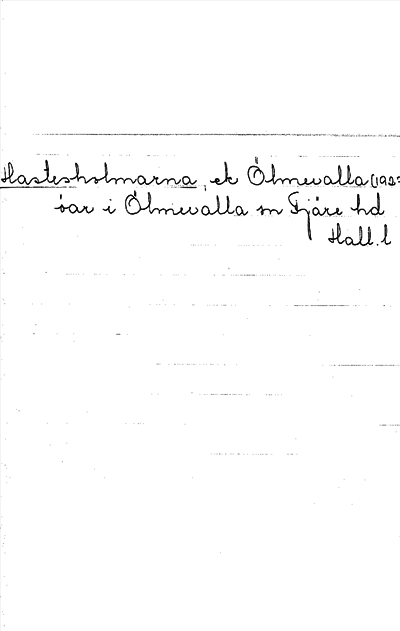 Hastesholmarna, ek Ölmevalla (192
öar i Ölmevalla sn Fjäre hd
Hall. l